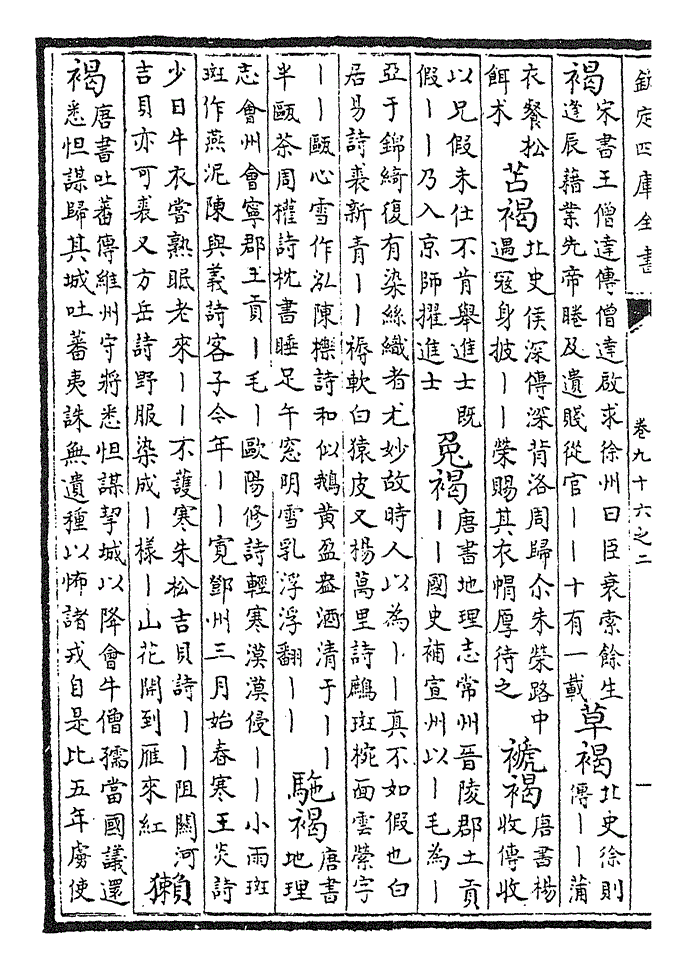 欽定四庫全書 卷九十六之二 一
褐宋書王僧達傳僧達啟求徐州曰臣衰索餘生逢辰藉業先帝睠及遺賤從官丨丨十有一載 草褐北史徐則傳丨丨蒲
衣餐松餌术 苫褐北史侯深傳深背洛周歸尒朱榮路中遇寇身披丨丨榮賜其衣帽厚待之 褫褐唐書楊收傳收
以兄假未仕不肯舉進士既假丨丨乃入京師擢進士 兔褐唐書地理志常州晉陵郡土貢丨丨國史補宣州以丨毛為丨
亞于錦綺復有染絲織者尤妙故時人以為丨丨真不如假也白居易詩裘新青丨丨褥軟白猿皮又楊萬里詩鷓斑椀面雲縈字
丨丨甌心雪作泓陳櫟詩和似鵝黃盈盎酒清于丨丨半甌茶周權詩枕書睡足午窓明雪乳浮浮翻丨丨 駞褐唐書地理
志會州會寧郡土貢丨毛丨歐陽修詩輕寒漠漠侵丨丨小雨斑斑作燕泥陳與義詩客子今年丨丨寛鄧州三月始春寒王炎詩
少日牛衣嘗熟眠老來丨丨不護寒朱松吉貝詩丨丨阻關河吉貝亦可裘又方岳詩野服染成丨様丨山花開到雁來紅 獺
褐唐書吐蕃傳維州守將悉怛謀挈城以降會牛僧孺當國議還悉怛謀歸其城吐蕃夷誅無遺種以怖諸戎自是比五年虜使